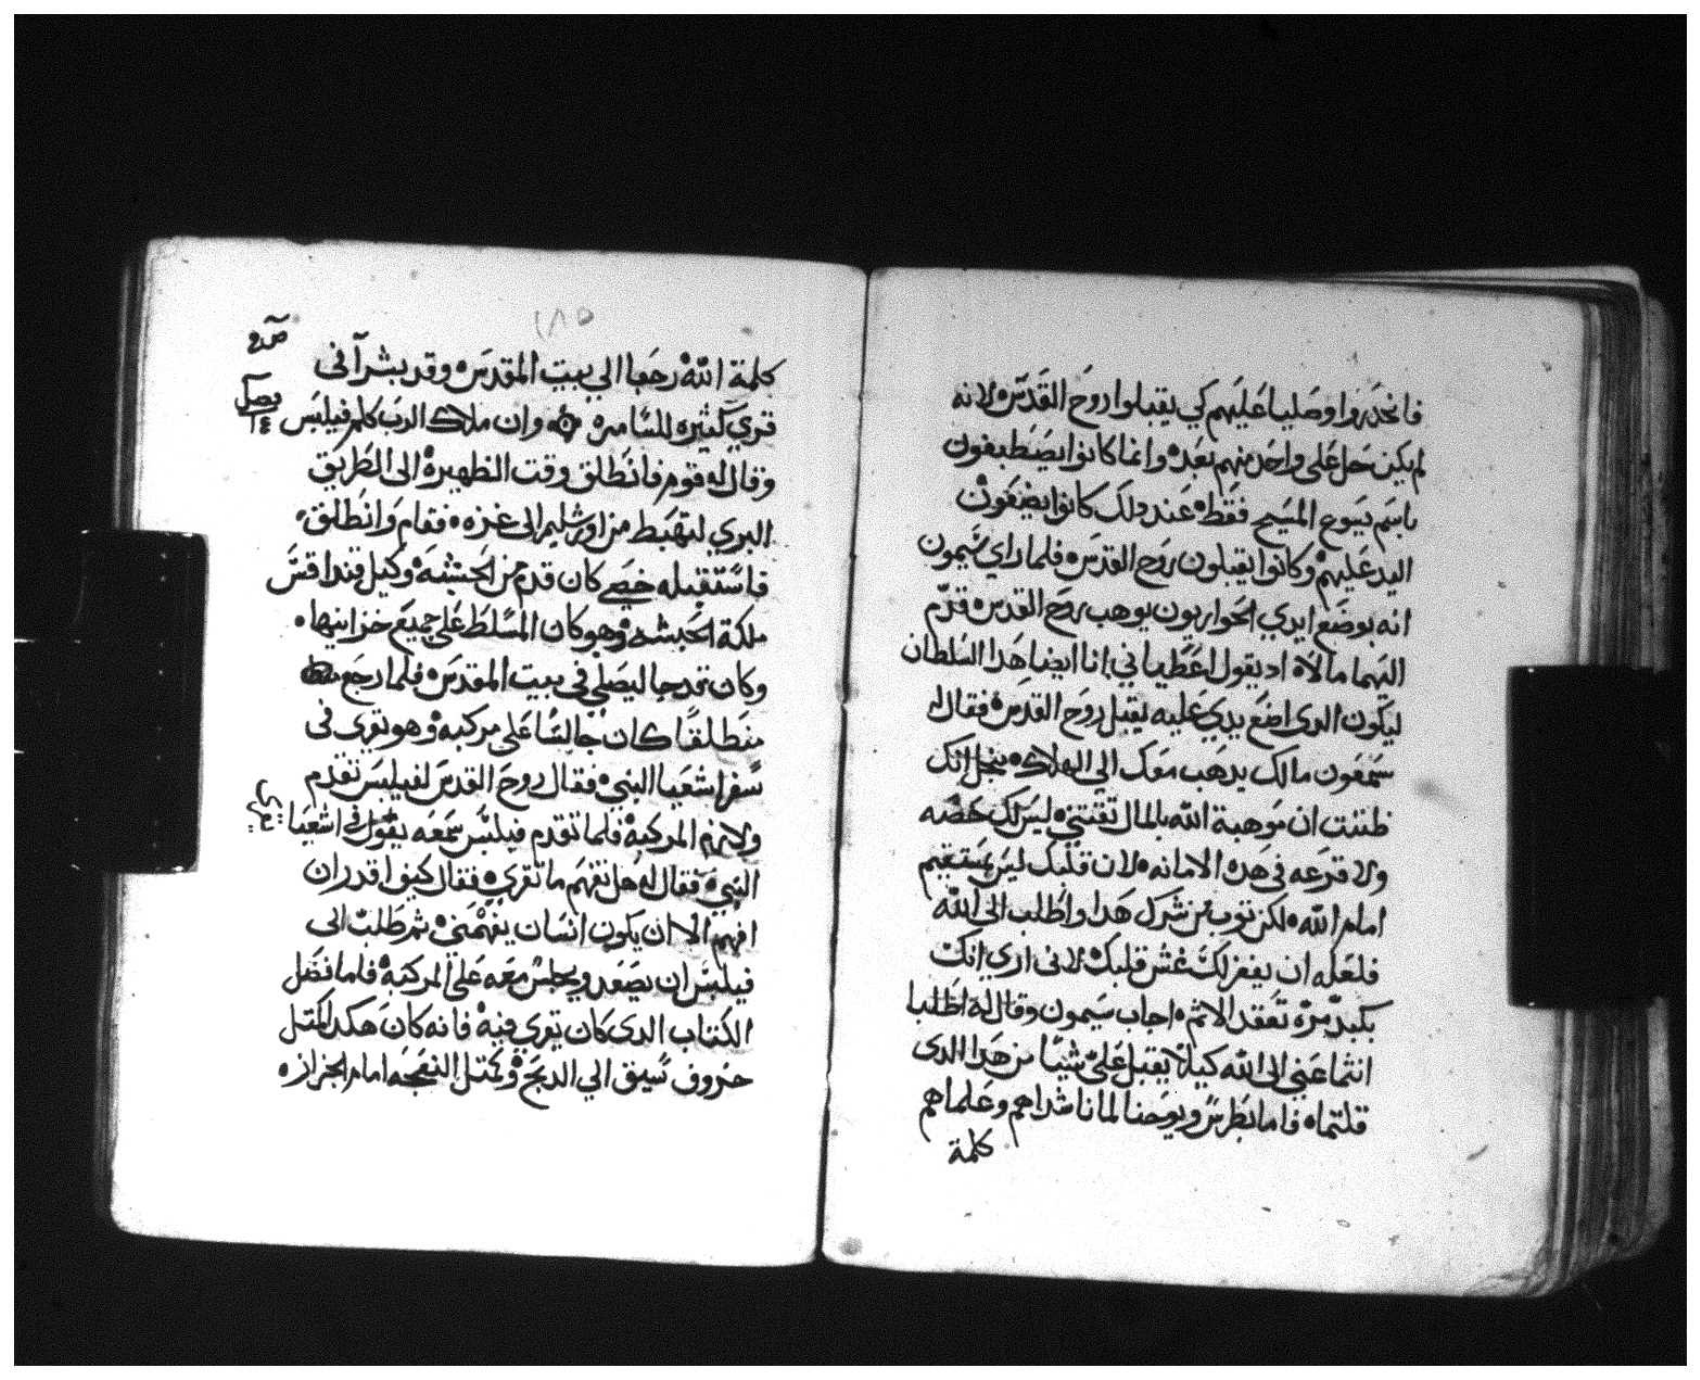 فانحدروا وصليا عليهم كي يقبلوا روح القدس لانه
لم يكن حل على واحد منهم بعد وانما كانوا يصطبغون
باسم يسوع المسيح فقط عند دلك كانوا يضعون
اليد عليهم وكانوا يقبلون روح القدس فلما راي سيمون
انه بوضع ايدي الحواريون يوهب روح القدس قدم
اليهما مالا اد يقول اعطياني انا ايضا هدا السلطان
ليكون الدى اضع يدي عليه يقبل روح القدس فقال له
سمعون مالك يدهب معك الي الهلاك بنجل انك
ظننت ان موهبة الله بالمال تقتني ليس لك حصه
ولا قرعه في هده الامانه لان قلبك ليس بمستقيم
امام الله لكن توب من شرك هدا واطلب الى الله
فلعله ان يغفر لك غش قلبك لانى اري انك
بكبد مره تعقد الاثم اجاب سيمون وقال له اطلبا
انتما عني الى الله كيلا يقبل علي شيئا من هدا الدى
قلتماه فاما بطرس ويوحنا لما ناشداهم وعلماهم
كلمة
١٨٥
كلمة الله رجعا الي بيت المقدس وقد بشرا في
قري كثيره للسامره وان ملاك الرب كلم فيلبس
فصل
وقال له قوم فانطلق وقت الظهيرة الى الطريق
البري لتهبط من اورشليم الى غزه فقام وانطلق
فاستقبله خصي كان قدم من الحبشة وكيل قنداقس
ملكة الحبشه وهو كان المسلط علي جميع خزاينها
وكان قد جا ليصلي في بيت المقدس فلما رجع
منطلقا كان جالسا على مركبه وهو يقرى في
سفر اشعيا النبي فقال روح القدس لفيلبس تقدم
ولازم المركبة فلما تقدم فيلبس سمعه يقول في اشعيا
النبي فقال له هل تفهم ما تقري فقال كيف اقدر ان
افهم الا ان يكون انسان يفهمني ثم طلب الى
فيلبس ان يصعد ويجلس معه على المركبة فاما فصل
الكتاب الدى كان يقري فيه فانه كان هكدا كمتل
خروف سيق الي الدبح وكمتل النعجه امام الجزاز